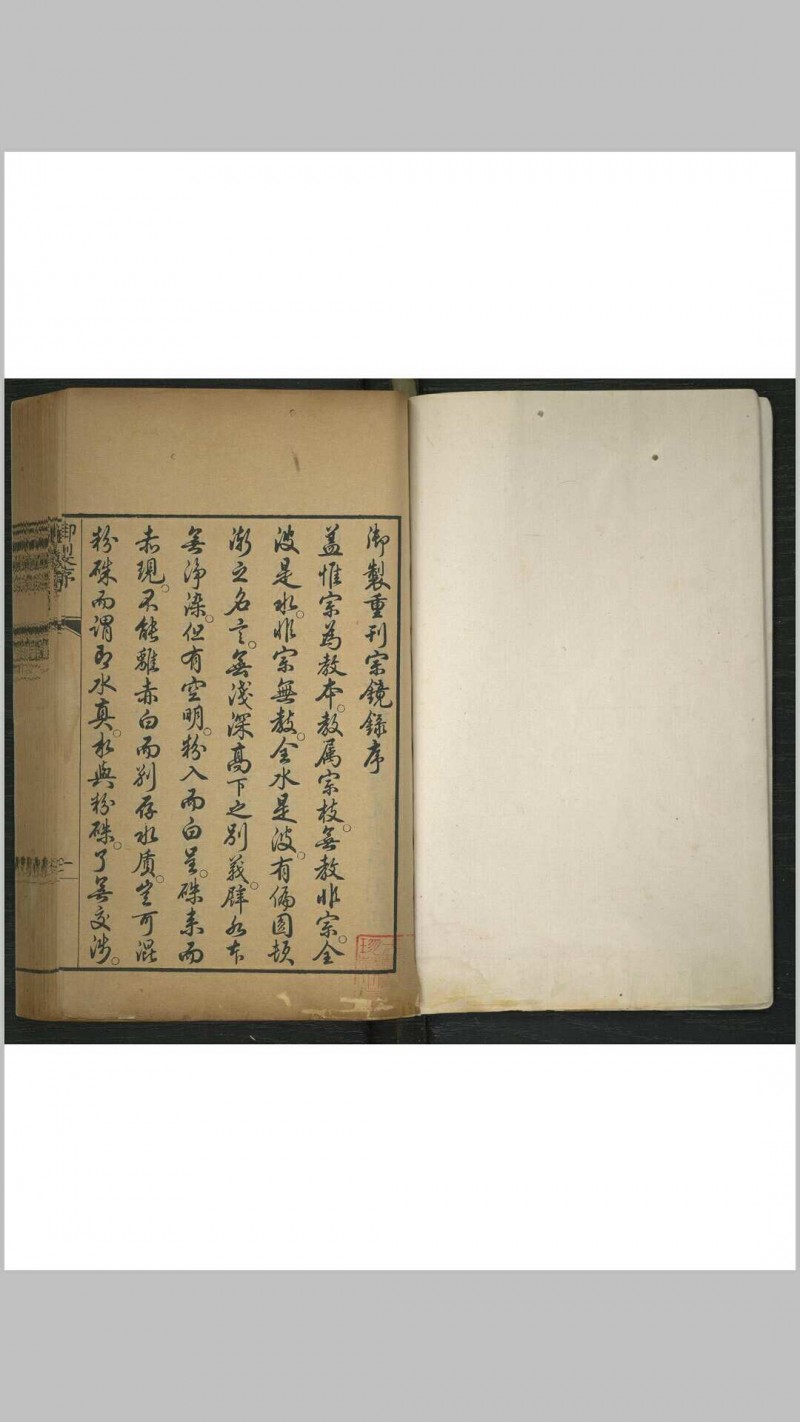 御製重刊宗鏡錄序
蓋惟宗為教本。教屬宗枝。無教非宗。全
波是水。非宗無教。全水是波。有偏圓頓
漸之名言。無淺深高下之別義。譬水本
無淨染。但有空明。粉入而白呈。硃来而
赤現。不能離赤白而別存水質。豈可混
粉硃而謂即水真。水與粉硃。了無交涉。
御製序
一